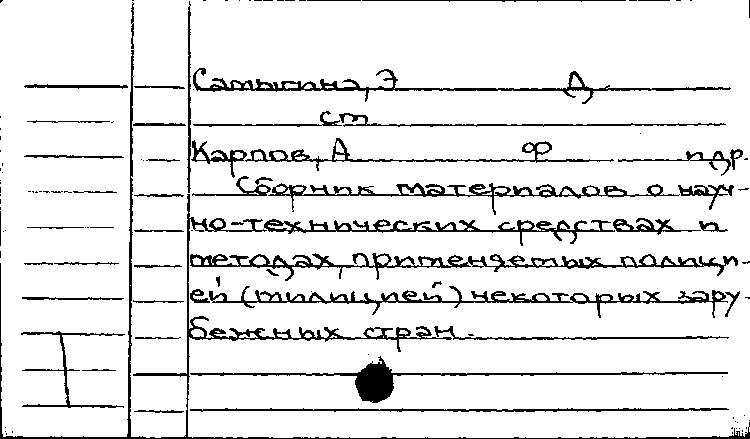 Самыгина, Э Д
ст.
Карпов, А Ф и др.
Сборник материалов о науч-
но-технических средствах и
методах, применяемых полици-
ей (милицией) некоторых зару-
бежных стран.